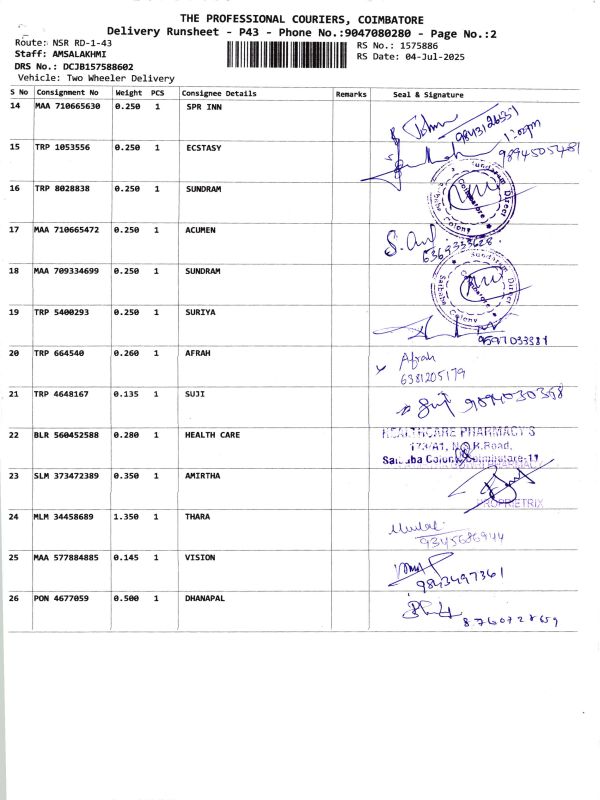 THE PROFESSIONAL COURIERS, COIMBATORE
Delivery Runsheet - P43 - Phone No.:9047080280 - Page No.:2
Route: NSR RD-1-43
RS No.: 1575886
Staff: AMSALAKHMI
RS Date: 04-Jul-2025
DRS No.: DCJB157588602
Vehicle: Two Wheeler Delivery
S No Consignment No Weight PCS Consignee Details Remarks Seal & Signature
14 MAA 710665630 0.250 1 SPR INN
9843126331
1:02pm
15 TRP 1053556 0.250 1 ECSTASY
9894505481
16 TRP 8028838 0.250 1 SUNDRAM
Sundaram Direct
Coimbatore
Saibaba Colony
17 MAA 710665472 0.250 1 ACUMEN
6369333628
18 MAA 709334699 0.250 1 SUNDRAM
Sundaram Direct
Coimbatore
Saibaba Colony
19 TRP 5400293 0.250 1 SURIYA
20 TRP 664540 0.260 1 AFRAH Afrah
6381205179
21 TRP 4648167 0.135 1 SUJI 9894030368
22 BLR 560452588 0.280 1 HEALTH CARE HEALTHCARE PHARMACY'S
173/A1, N.S.R.Road,
Saibaba Colony, Coimbatore-11
23 SLM 373472389 0.350 1 AMIRTHA
PROPRIETRIX
24 MLM 34458689 1.350 1 THARA
9345686944
25 MAA 577884885 0.145 1 VISION
9843497361
26 PON 4677059 0.500 1 DHANAPAL
8760728659